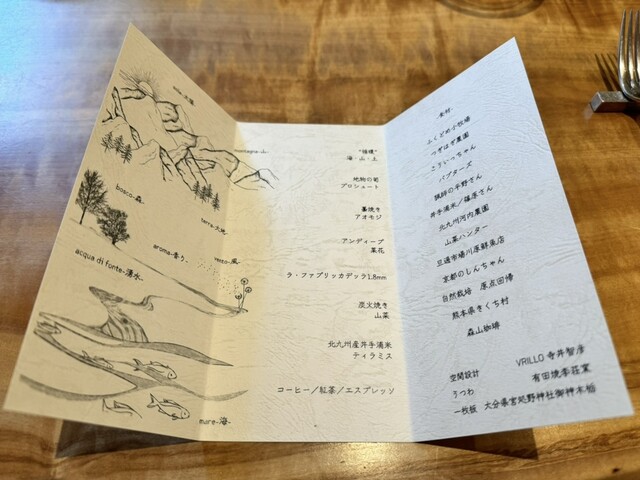 montagna-山-
bosco-森-
terra-大地-
aroma-香り-
vento-風-
acqua di fonte-湧水-
mare-海-
"循環"
海・山・土
地物の筍
プロシュート
藁焼き
アオモジ
アンディーブ
菜花
ラ・ファブリカデッラ1.8mm
炭火焼き
山菜
北九州産井手浦米
ティラミス
コーヒー／紅茶／エスプレッソ
-食材-
ふくどめ小牧場
つぎはぎ農園
こういっちゃん
バブターズ
猟師の平野さん
井手浦米／篠原さん
北九州河内農園
山菜ハンター
旦過市場川原鮮魚店
京都のしんちゃん
自然栽培 原点回帰
熊本県きくち村
森山珈琲
空間設計 VRILLO 寺井智彦
うつわ 有田焼李荘窯
一枚板 大分県宮処野神社御神木栃